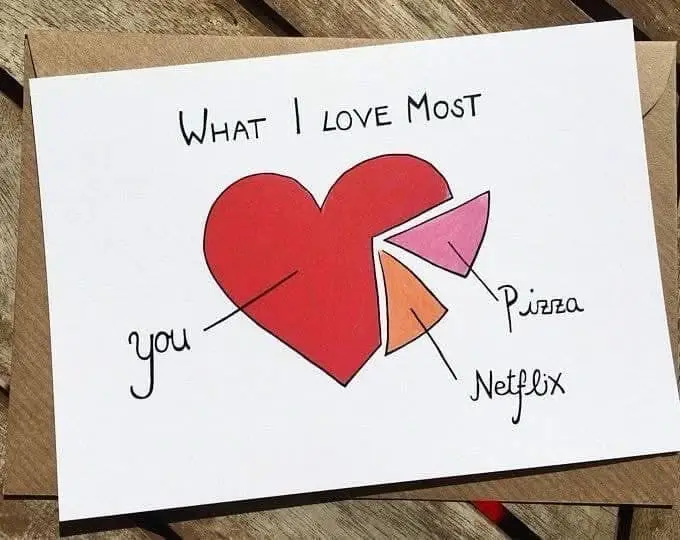 What I love Most
you
Pizza
Netflix